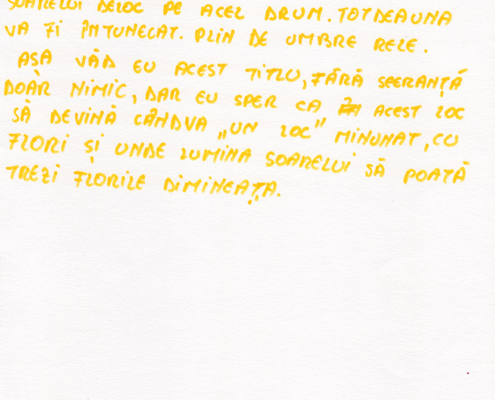 SOARELUI DELOC PE ACEL DRUM. TOTDEAUNA
VA FI ÎNTUNECAT. PLIN DE UMBRE RELE.
AȘA VĂD EU ACEST TITLU, FĂRĂ SPERANȚĂ
DOAR NIMIC, DAR EU SPER CA ACEST LOC
SĂ DEVINĂ CÂNDVA „UN LOC" MINUNAT, CU
FLORI ȘI UNDE LUMINA SOARELUI SĂ POATĂ
TREZI FLORILE DIMINEAȚA.